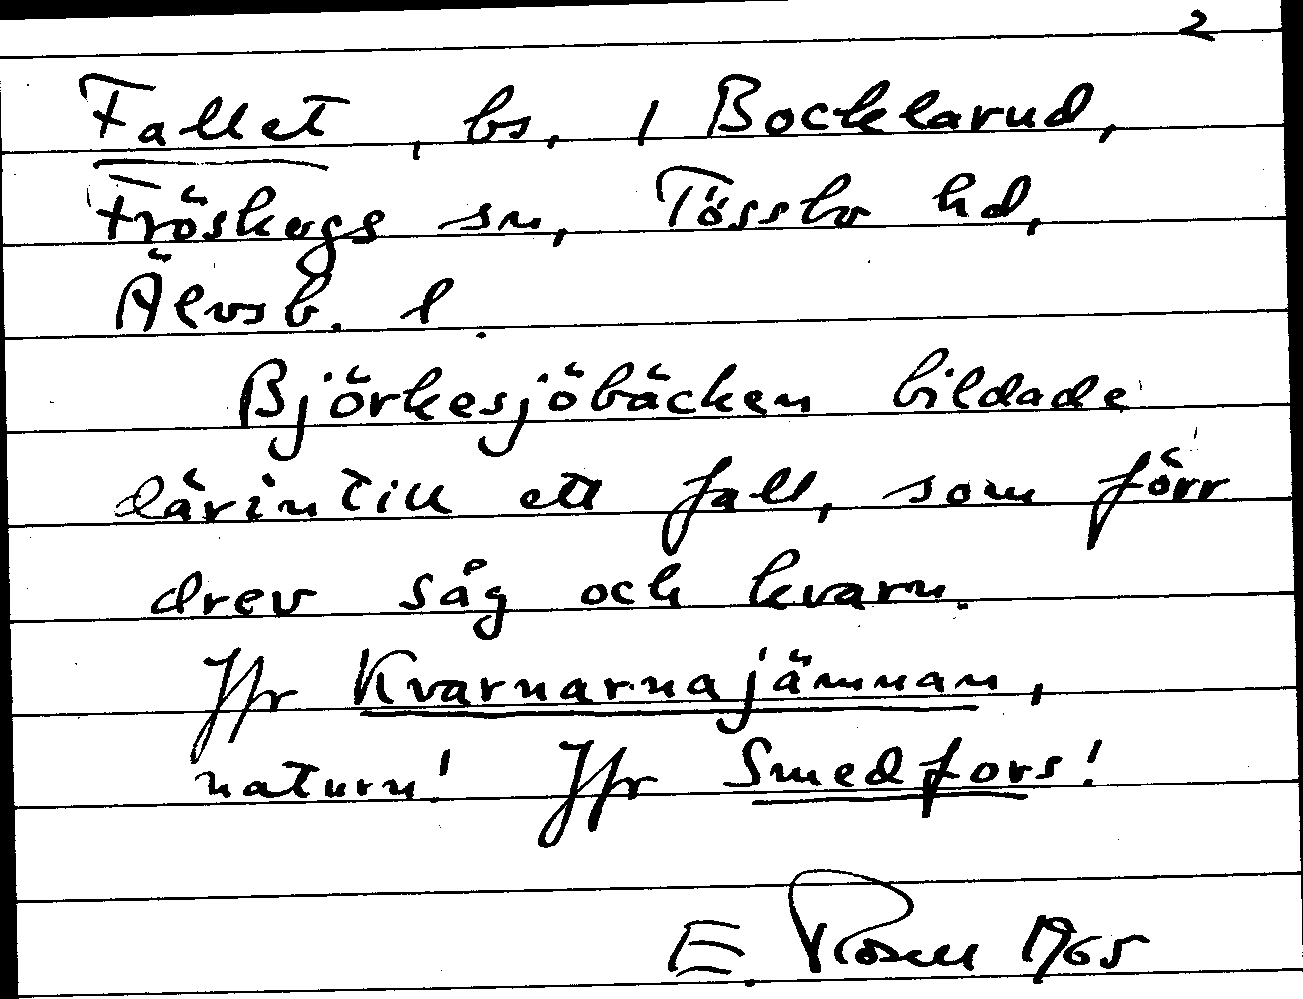 2
Fallet, bs, i Bocklarud,
Fröskogs sn, Tössbo hd,
Älvsb. l.
Björkesjöbäcken bildade
därintill ett fall, som förr
drev såg och kvarn.
Jfr Kvarnarnajämnan,
naturn! Jfr Smedfors!
E. Rosell 1965